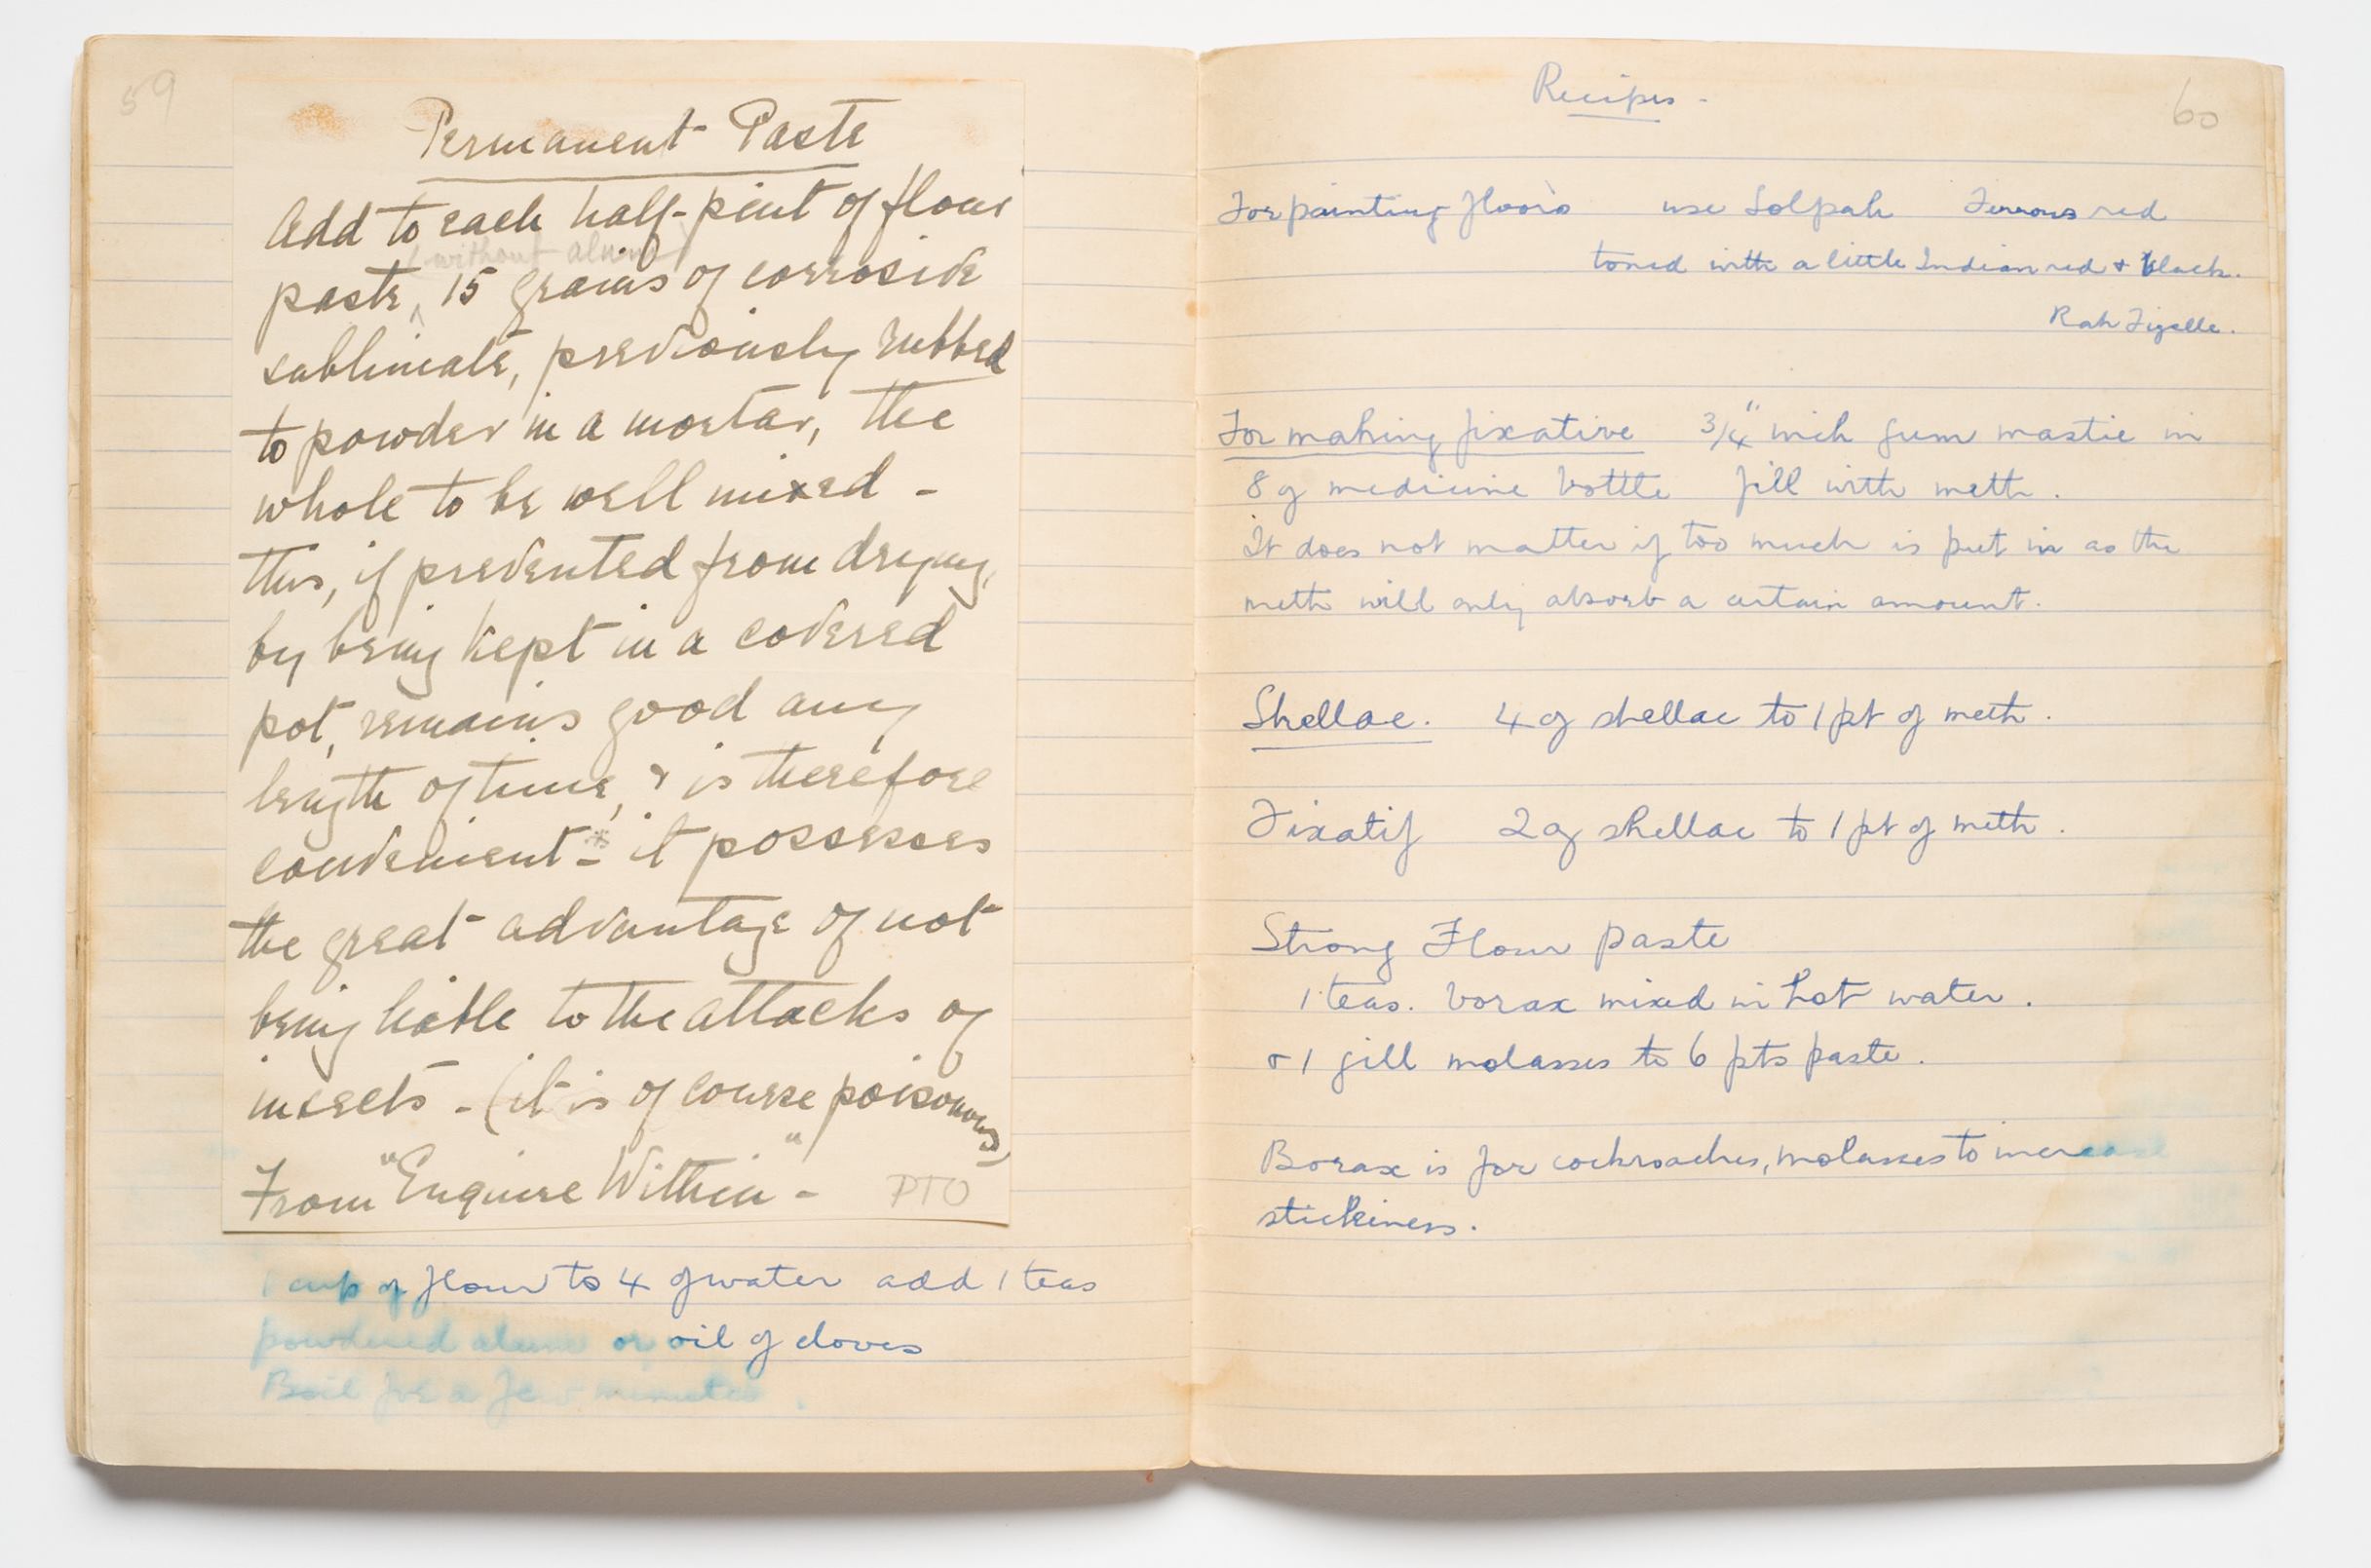 59
Permanent Paste
Add to each half-pint of flour
(without alum)
paste, 15 grains of corrosive
sublimate, previously rubbed
to powder in a mortar, the
whole to be well mixed -
this, if prevented from drying,
by being kept in a covered
pot, remains good any
length of time, & is therefore
convenient - * it possesses
the great advantage of not
being liable to the attacks of
insects - (it is of course poisonous)
From "Enquire Within" - PTO
1 cup of flour to 4 of water add 1 teas
powdered alum or oil of cloves
Boil for a few minutes.
60
Recipes -
For painting floors use Solpah Ferrous red
toned with a little Indian red & black.
Rah Fizelle.
For making fixative 3/4" inch gum mastic in
8 oz medicine bottle fill with meth.
It does not matter if too much is put in as the
meth will only absorb a certain amount.
Shellac. 4 oz shellac to 1 pt of meth.
Fixatif 2 oz shellac to 1 pt of meth.
Strong Flour paste
1 teas. borax mixed in hot water.
& 1 gill molasses to 6 pts paste.
Borax is for cockroaches, molasses to increase
stickiness.